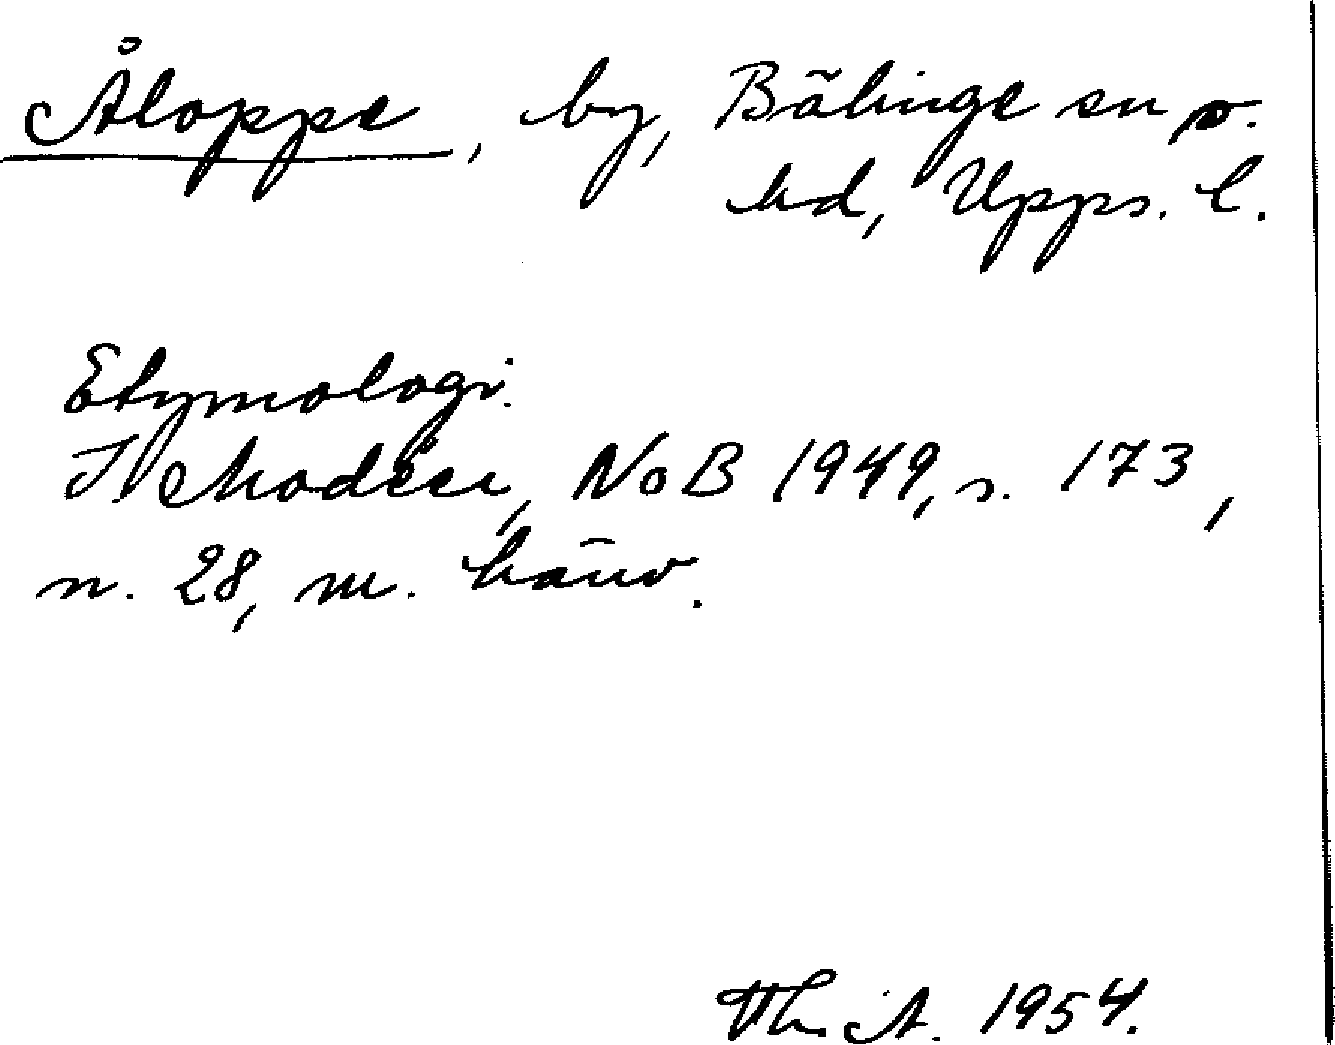 Åloppe, by, Bälinge sn o.
hd, Upps. l.
Etymologi.
I Modéer, NoB 1949, s. 173,
n. 28, m. hänv.
Th. A. 1954.